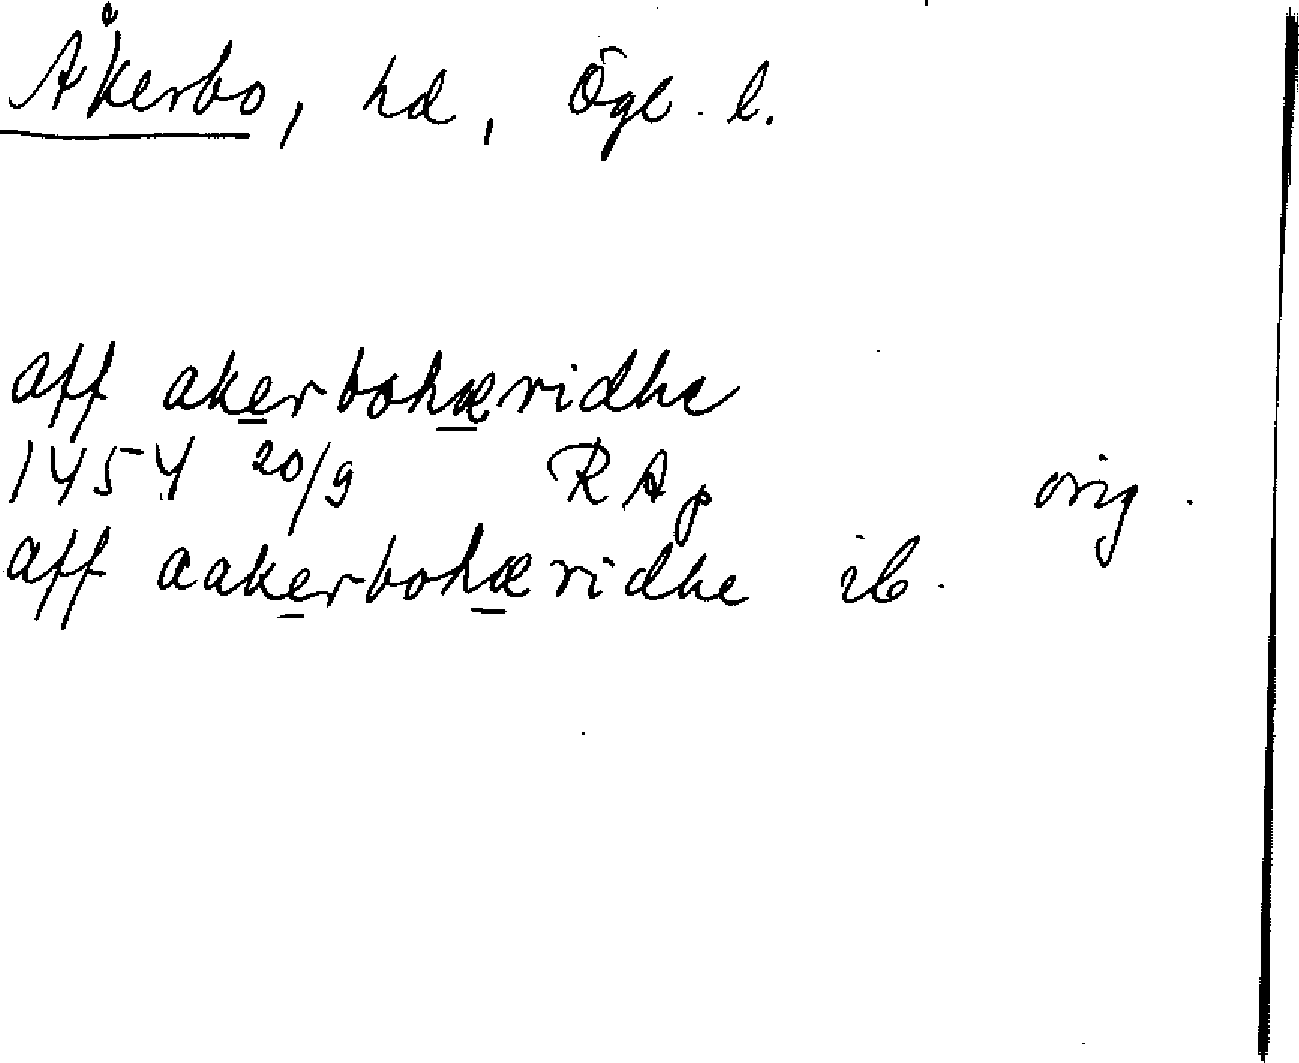 Åkerbo, hd, Ögl. l.
aff akerbohæridhe
1454 20/9 RAp orig.
aff aakerbohæridhe ib.